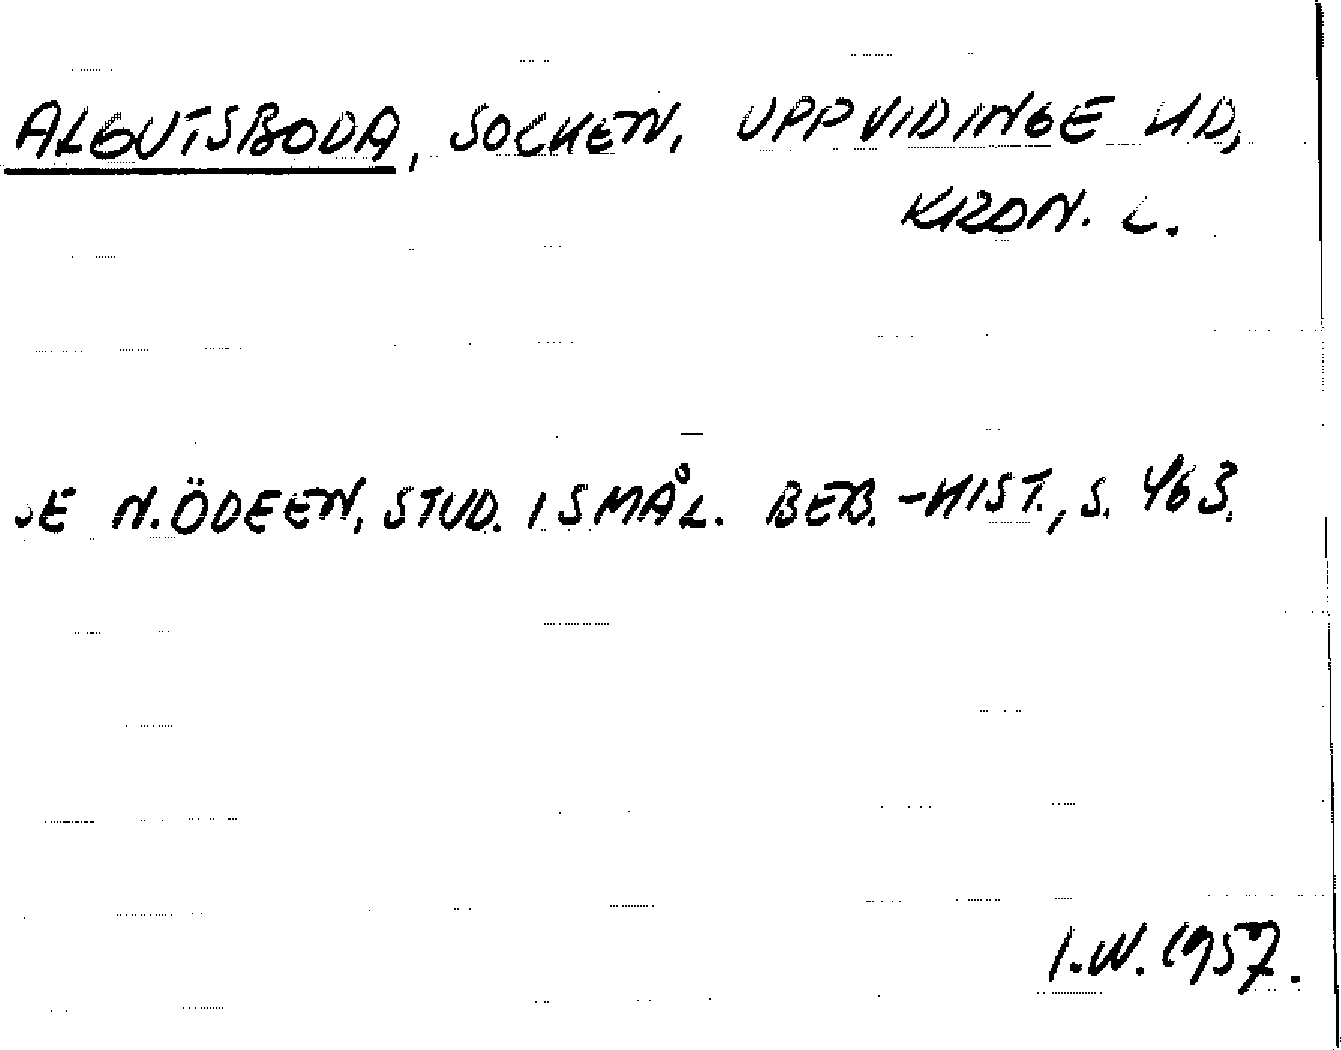 ALGUTSBODA, SOCKEN, UPPVIDINGE HD,
KRON. L.
SE N. ÖDEEN, STUD. I SMÅL. BEB.-HIST., S. 463.
I.W. 1957.